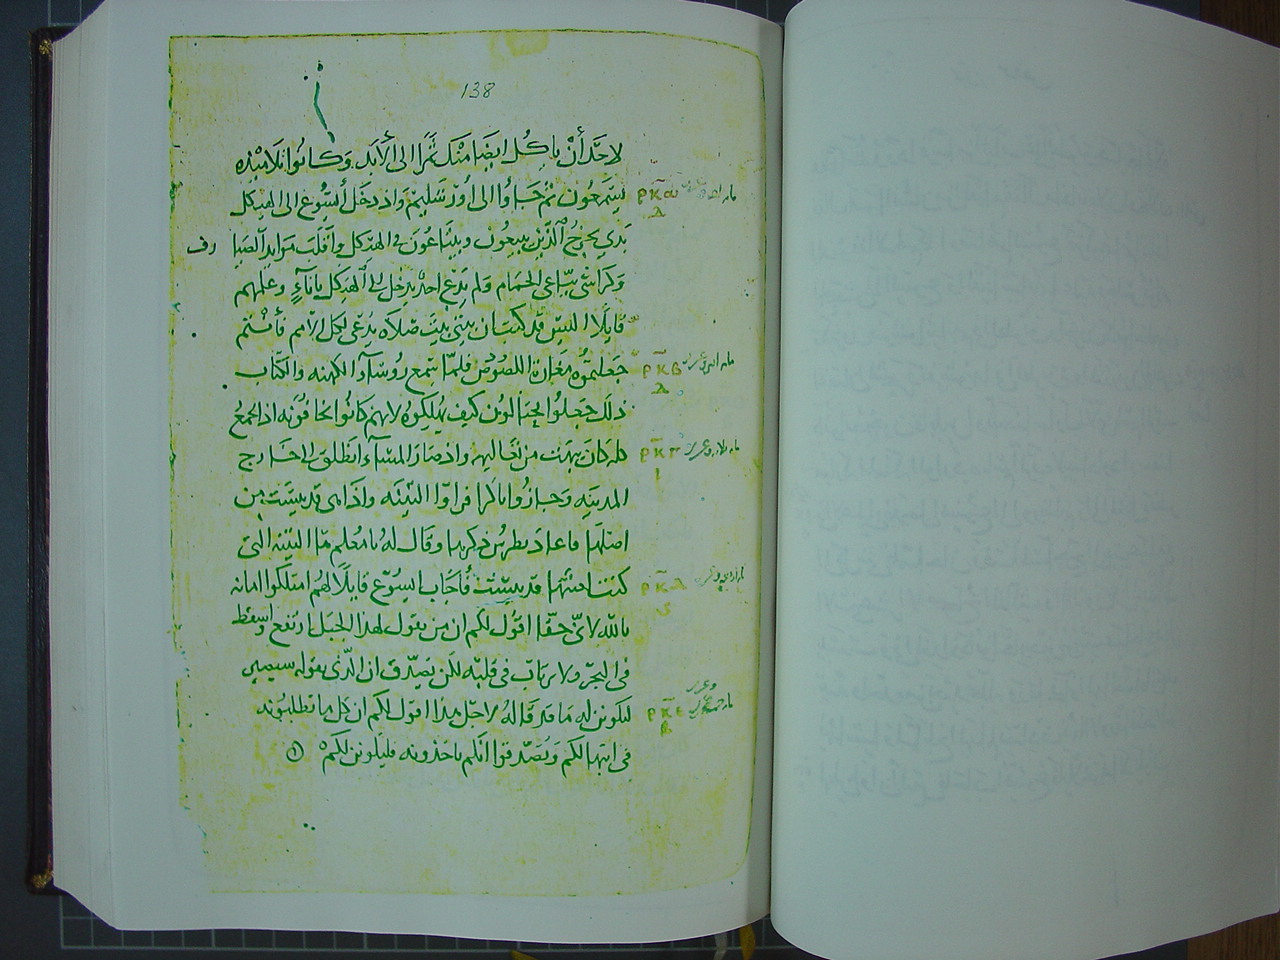 138
لاحَد أن ياكل ايضا منك ثمرا الى الأبد وكانوا تلاميذه
يسمعون ثم جاوا الى اورشليم واذ دخل أيسوع الى الهيكل
بدى يخرج الذين يبيعون ويبتاعون في الهيكل وأقلب موايد الصيا
رف
وكراسي بياعي الحمام ولم يدع احد يدخل الى الهيكل باناء وعلمهم
قايلا اليس قد كتب ان بيتي بيت صلاه يدعى لكل الامم فأنتم
جعلتموه مغارة اللصوص فلما سمع روساوا الكهنه والكتاب
ذلك جعلوا يحتالون كيف يهلكوه لانهم كانوا يخافونه اذ الجمع
كله كان يبهت من تعاليمه واذ صار المساء انطلق الى خارج
المدينه وجازوا باكرا فراوا التينه واذا هي قد يبست من
اصلها فاعاد بطرس ذكرها وقال له يا معلم ها التينه التي
كنت لعنتها قد يبست فأجاب ايسوع قايلا لهم امتلكوا امانه
بالله لاني حقا اقول لكم ان من يقول لهذا الجبل ارتفع واسقط
في البحر ولا يرتاب في قلبه لكن يصدق ان الذي يقوله سيصير
ليكونن له ما قد قاله لاجل هذا اقول لكم ان كل ما تطلبونه
في ابتهالكم وتصدقوا انكم تاخذونه فليكونن لكم
ρκα
ρκβ
ρκγ
ρκδ
ρκε